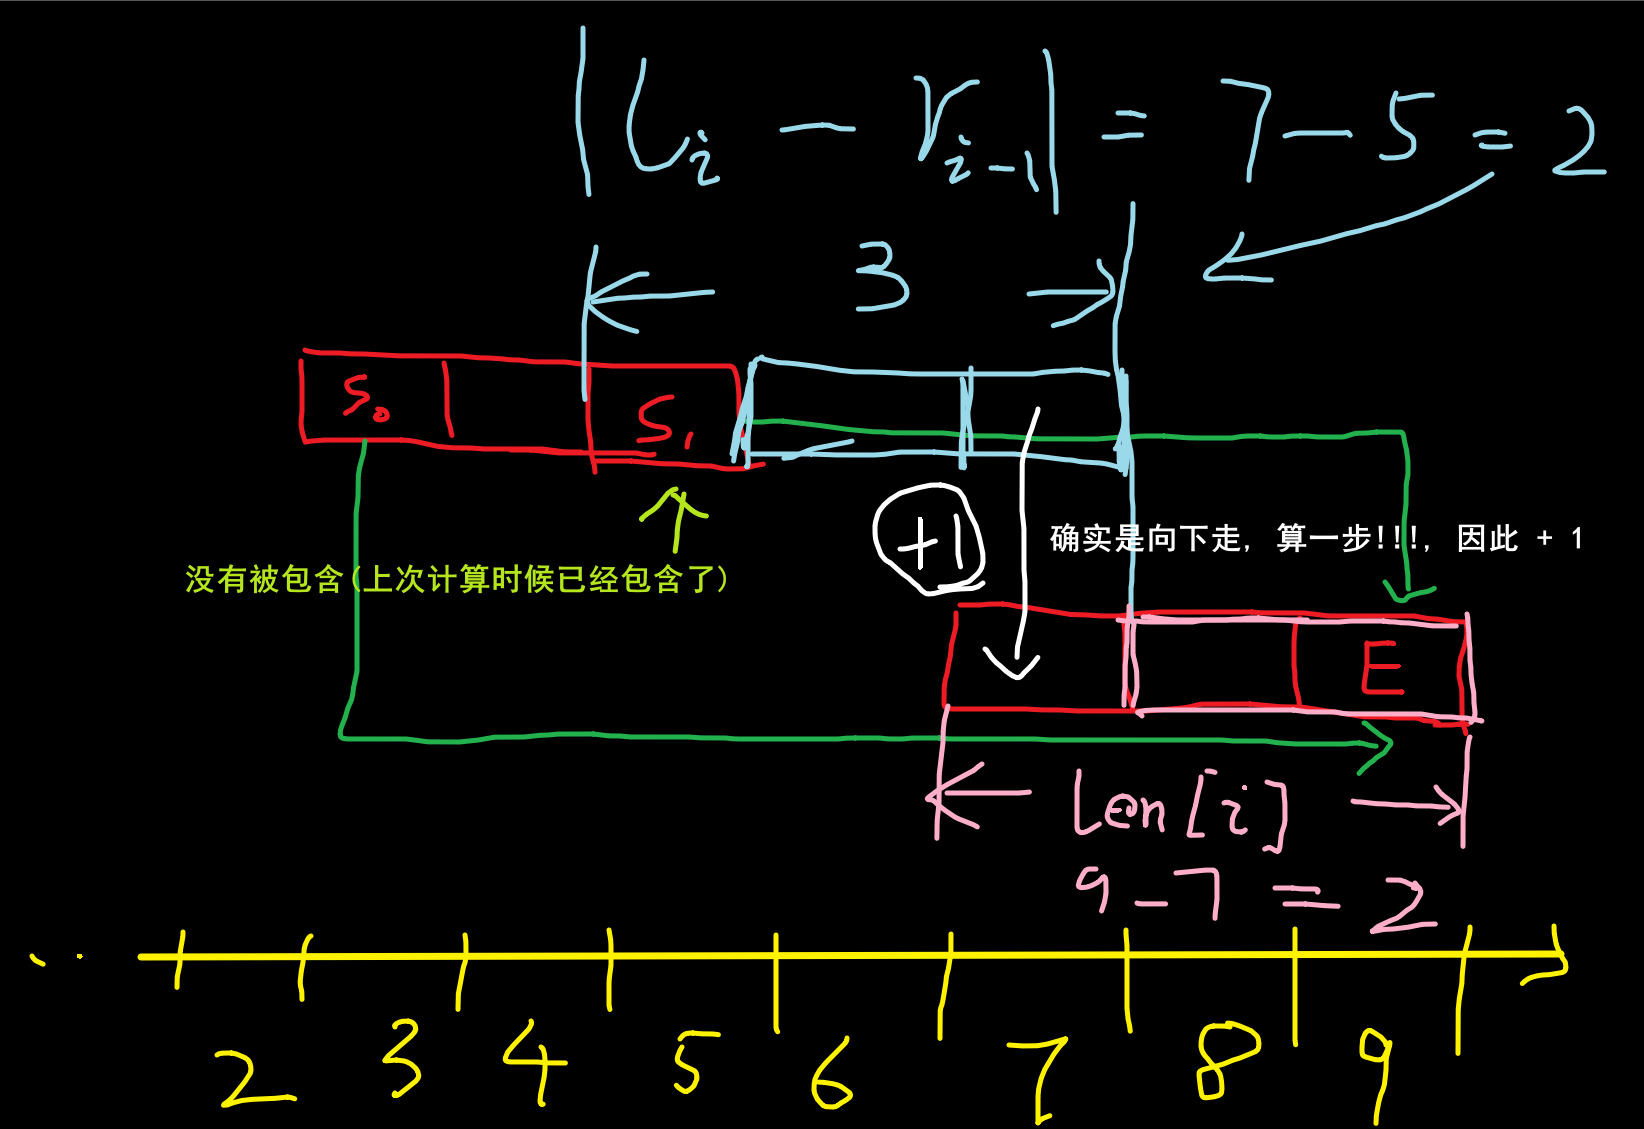 |l_i - r_{i-1}| = 7 - 5 = 2
3
S_0 S_1
+1
确实是向下走, 算一步!!!, 因此 + 1
没有被包含(上次计算时候已经包含了)
E
len[i]
9 - 7 = 2
2 3 4 5 6 7 8 9